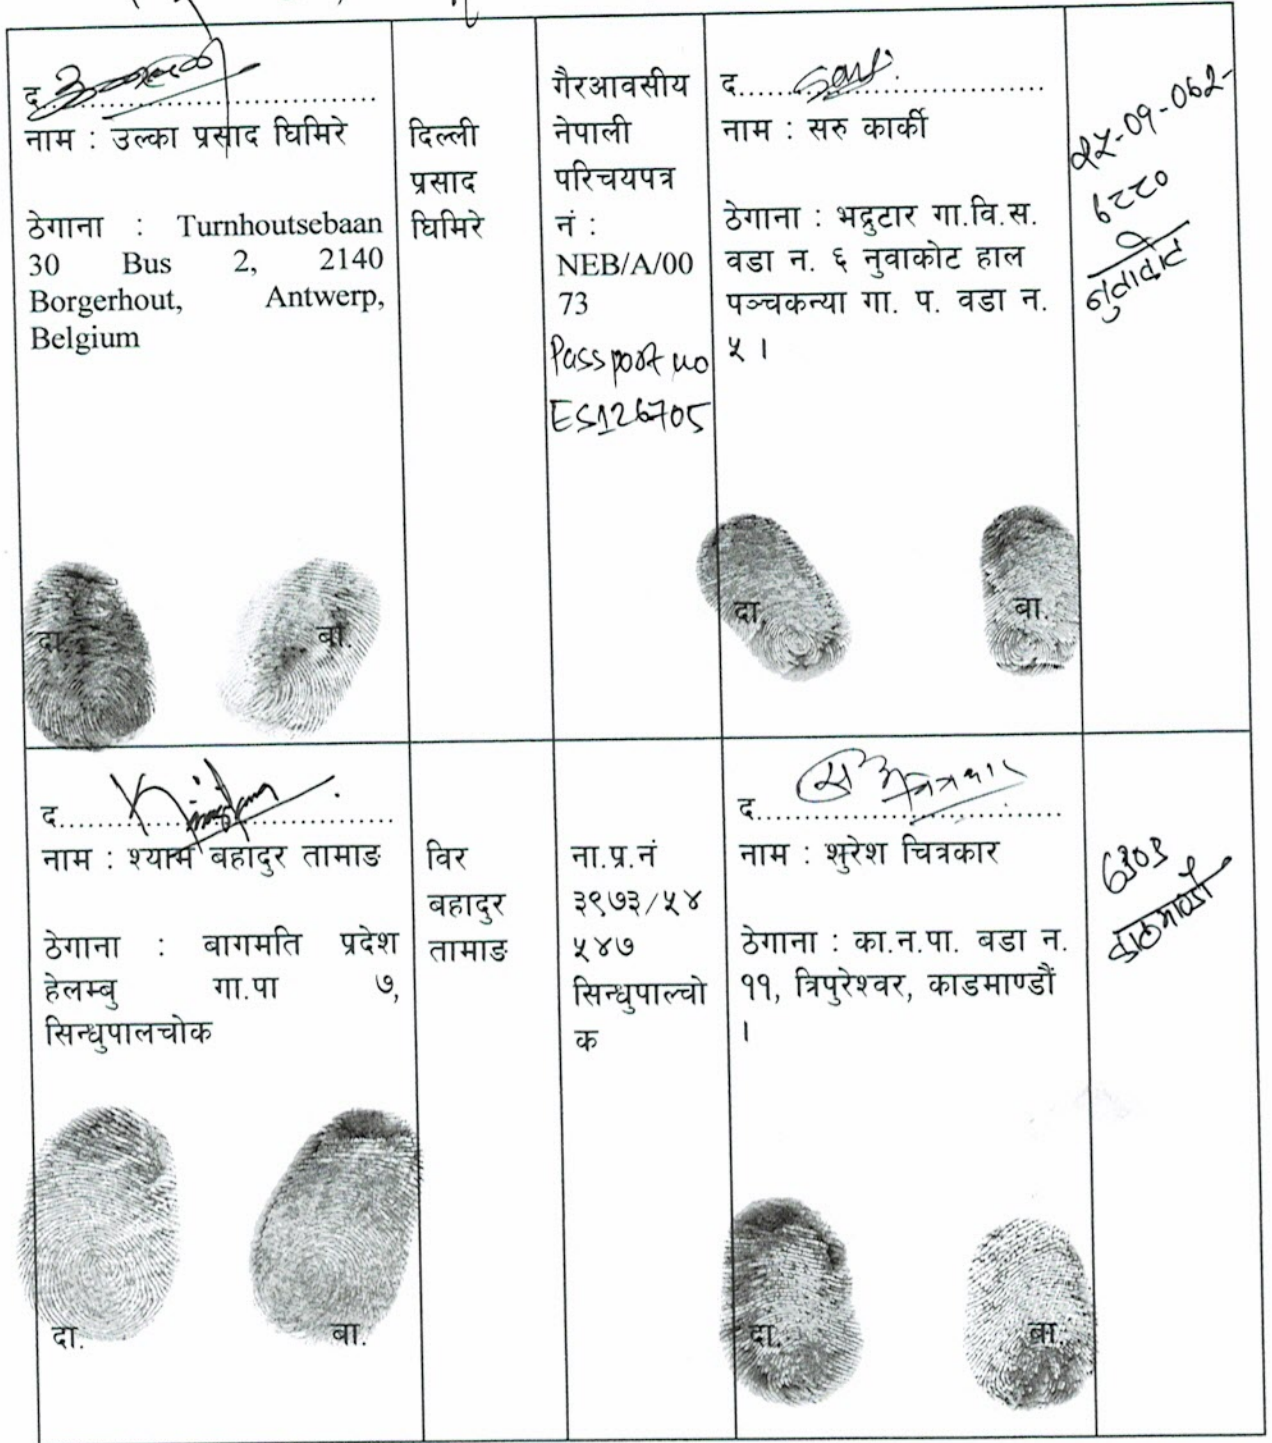 द....................
नाम : उल्का प्रसाद घिमिरे
ठेगाना : Turnhoutsebaan
30 Bus 2, 2140
Borgerhout, Antwerp,
Belgium
दा.
बा.
दिल्ली
प्रसाद
घिमिरे
गैरआवसीय
नेपाली
परिचयपत्र
नं :
NEB/A/00
73
Passport no
ES126705
द....................
नाम : सरु कार्की
ठेगाना : भद्रुटार गा.वि.स.
वडा न. ६ नुवाकोट हाल
पञ्चकन्या गा. प. वडा न.
५ ।
दा.
बा.
नुवाकोट
द....................
नाम : श्याम बहादुर तामाङ
ठेगाना : बागमति प्रदेश
हेलम्बु गा.पा ७,
सिन्धुपालचोक
दा.
बा.
विर
बहादुर
तामाङ
ना.प्र.नं
३९७३/५४
५४७
सिन्धुपाल्चो
क
द....................
नाम : शुरेश चित्रकार
ठेगाना : का.न.पा. वडा न.
११, त्रिपुरेश्वर, काडमाण्डौं
।
दा.
बा.
काठमाण्डौ